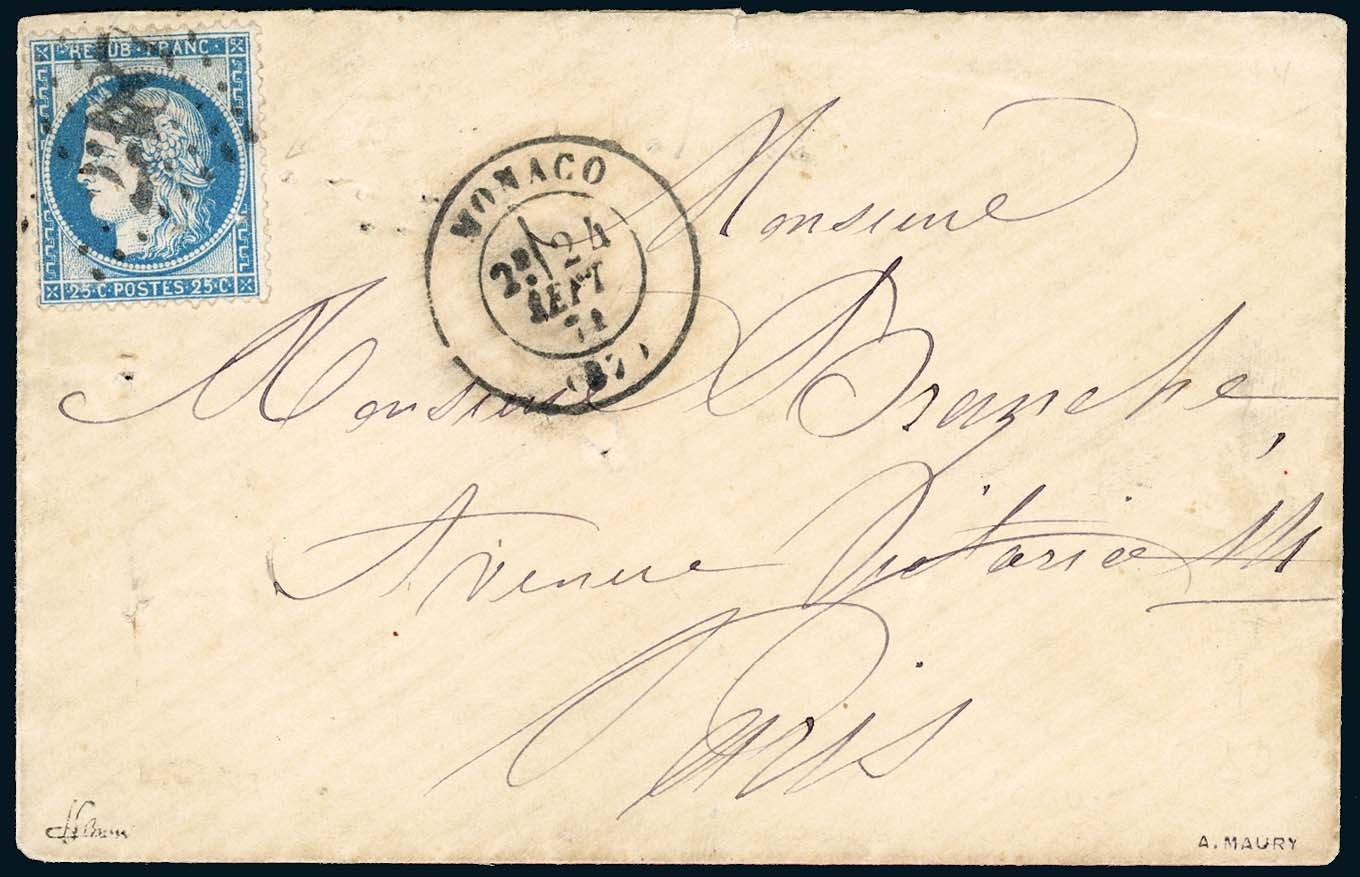 REPUB·FRANC·
25·C·POSTES·25·C·
MONACO
2E 24
SEPT
71
(87)
Monsieur
Monsieur Branche,
Avenue Victoria
Paris
A. MAURY